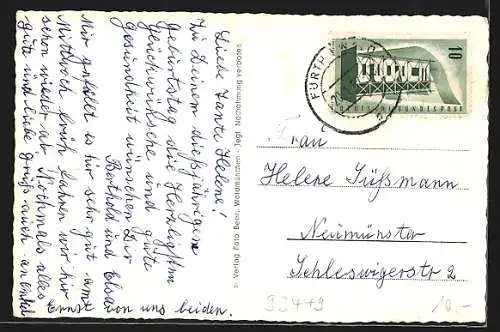 Liebe Tante Helene!
Zu Deinem diesjährigen
Geburtstag die Herzlichsten
Glückwünsche und gute
Gesundheit wünschen Dir
Berthold und Elsa
Mir gefällt es hir sehr gut
Mittwoch früh fahren wir hir
schon wieder ab. Nochmals alles
gute und liebe grüße auch an Onkel
Ernst von uns beiden.
Verlag Foto Beer, Jegl. Nachahmung verboten
FÜRTH
10
DEUTSCHE BUNDESPOST
Frau
Helene Süßmann
Neumünster
Schleswigerstr 2
93479
10.-